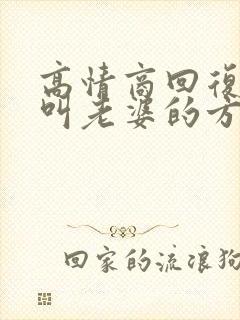 高情商回復
叫老婆的方
回家的流浪狗